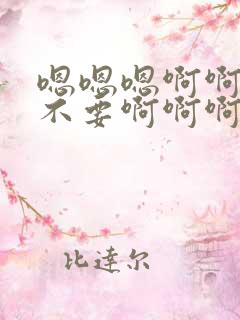 嗯嗯嗯啊啊
不要啊啊啊
比達尔